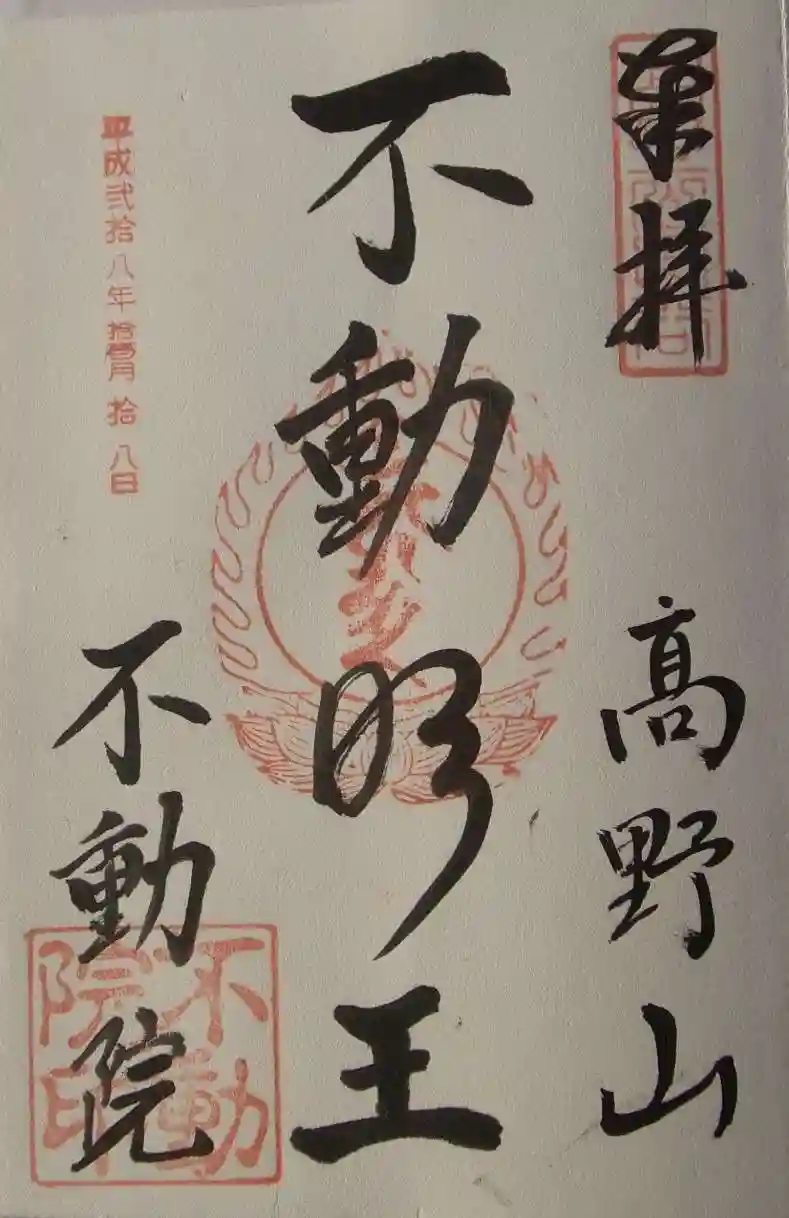 奉拝
高野山
不動明王
平成弐拾八年拾壹月拾八日
不動院
不動院印